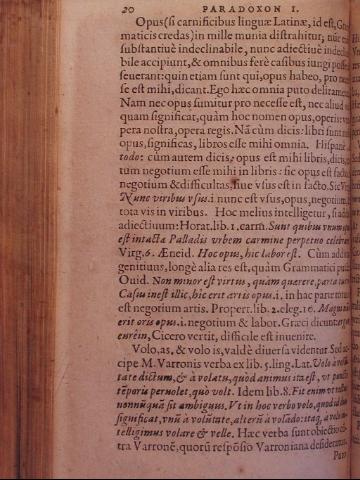 20 PARADOXON I.
Opus (si carnificibus linguæ Latinæ, id est, Gram
maticis credas) in mille munia distrahitur, nũc
substantiuè indeclinabile, nunc adiectiuè indecli
bile accipiunt, & omnibus ferè casibus iungi
seuerant: quin etiam sunt qui, opus habeo, pro ne
se est mihi, dicant. Ego hæc omnia puto deliramen
Nam nec opus sumitur pro necesse est, nec aliud
quam significat, quàm hoc nomen opus, operis: v
pera nostra, opera regis. Nã cùm dicis: libri sunt mi
opus, significas, libros esse mihi omnia. Hispanè
todo: cùm autem dicis, opus est mihi libris, dicis,
tum negotium esse mihi in libris: sic opus est facto
negotium & difficultas, siue vsus est in facto. Sic Virg
Nunc viribus vsus. i. nunc est vsus, opus, negotium,
tota vis in viribus. Hoc meliùs intelligetur, si adda
adiectiuum: Horat. lib. 1. carm. Sunt quibus vnum opus
est intacta Palladis vrbem carmine perpetuo celebrare
Virg. 6. Æneid. Hoc opus, hic labor est. Cùm additur
genitiuus, longè alia res est, quàm Grammatici
Ouid. Non minor est virtus, quàm quærere, parta
Casus inest illic, hic erit artis opus. i. in hac parte
est negotium artis. Propert. lib. 2. eleg. 10. Magni
erit oris opus. i. negotium & labor. Græci dicunt
eurêin, Cicero vertit, difficile est inuenire.
Volo, as, & volo is, valdè diuersa videntur. Sed ac
cipe M. Varronis verba ex lib. 5. ling. Lat. Volo à volun
tate dictum, & à volatu, quòd animus ita est, vt puncto
tẽporis peruolet, quò volt. Idem lib. 8. Fit enim vt
nonnũquã sit ambiguus. Vt in hoc verbo volo, quod id
significat, vnũ à volũtate, alterũ à volãdo: itaq, à volo
telligimus volare & velle. Hæc verba sunt obiectio
tra Varronẽ, quorũ respõsio Varroniana desideratur.